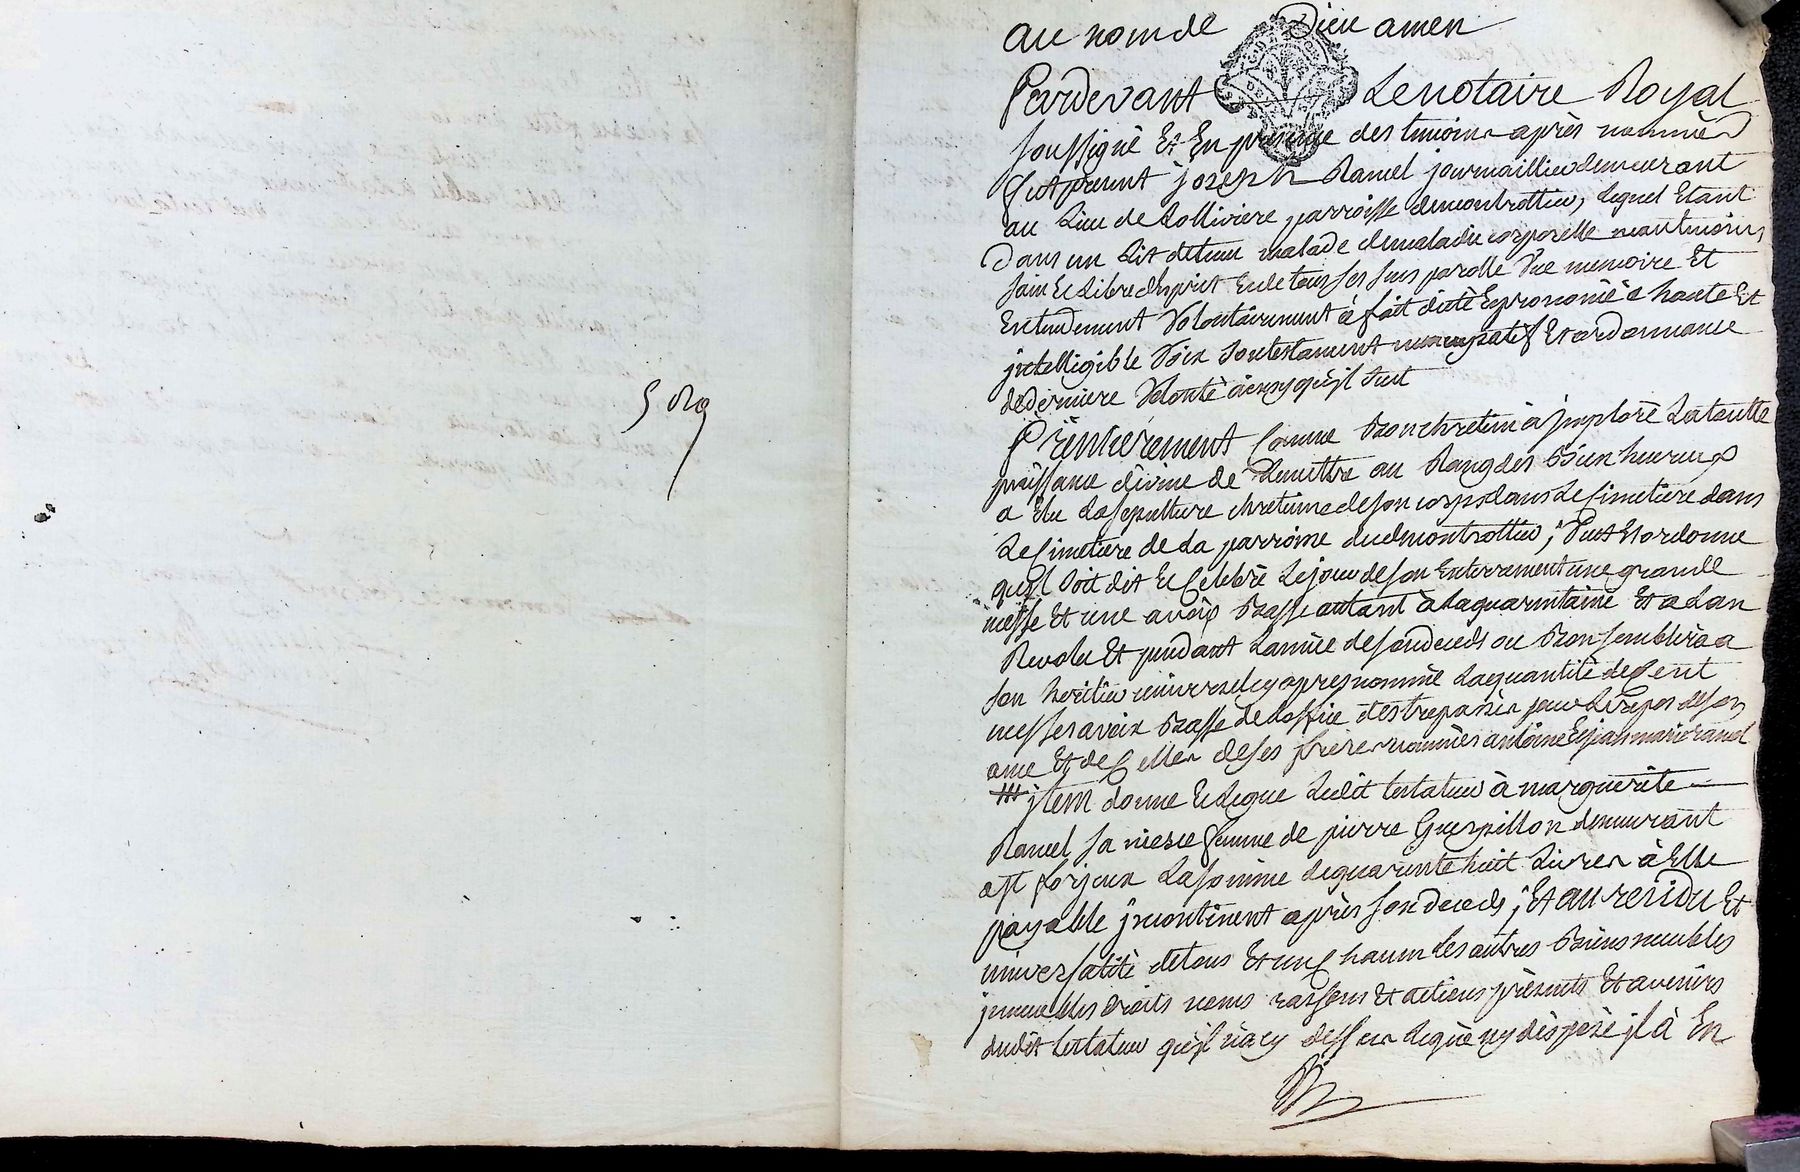 au nom de Dieu amen
Pardevant Le notaire Royal
soussigné Et En presence des temoins après nommés
fut present joseph Ramel journaillier demeurant
au Lieu de Lolliviere parroisse de montrottier, lequel Etant
Dans un Lit detenu malade de maladie corporelle neantmoins
sain Et Libre d'Esprit En de tous ses sens parolle Vue memoire Et
Entendement Volontairement à fait dicté Et prononcé à haute Et
jntelligible Voix son testament nuncupatif Et ordonnance
de derniere Volonté ainsy qu'jl suit
Prémierement Comme Bon chretien à jmploré La toutte
puissance divine de Le mettre au Rang des Bienheureux
a Elu La sepulture chretienne de son corps dans Le Cimetiere dans
Le Cimetiere de La parroisse dud montrottier, Veut Et ordonne
qu'jl soit dit Et Celebré Le jour de son Enterrement une grande
messe Et une à voix Basse autant à La quarentaine Et a Lan
Revolu Et pendant Lannée de son deceds ou Bon semblera a
son heritier universel cy après nommé La quantité de Cent
messes à voix Basse de Loffice des trepassés pour Le repos de son
ame Et de Celles de ses freres nommés antoine Et jean marie ramel
jtem donne Et Legue Ledit testateur à marguerite
Ramel sa niesce femme de pierre Guespillon demeurant
a St forjeux La somme de quarente huit Livres à Elle
payable jncontinent après son deceds; Et au residu Et
universalité de tous Et un Chacun Les autres Biens meubles
jmmeubles droits noms raisons Et actions présents Et avenirs
dudit testateur qu'jl n'a cy dessus Legué ny disposé jl à En